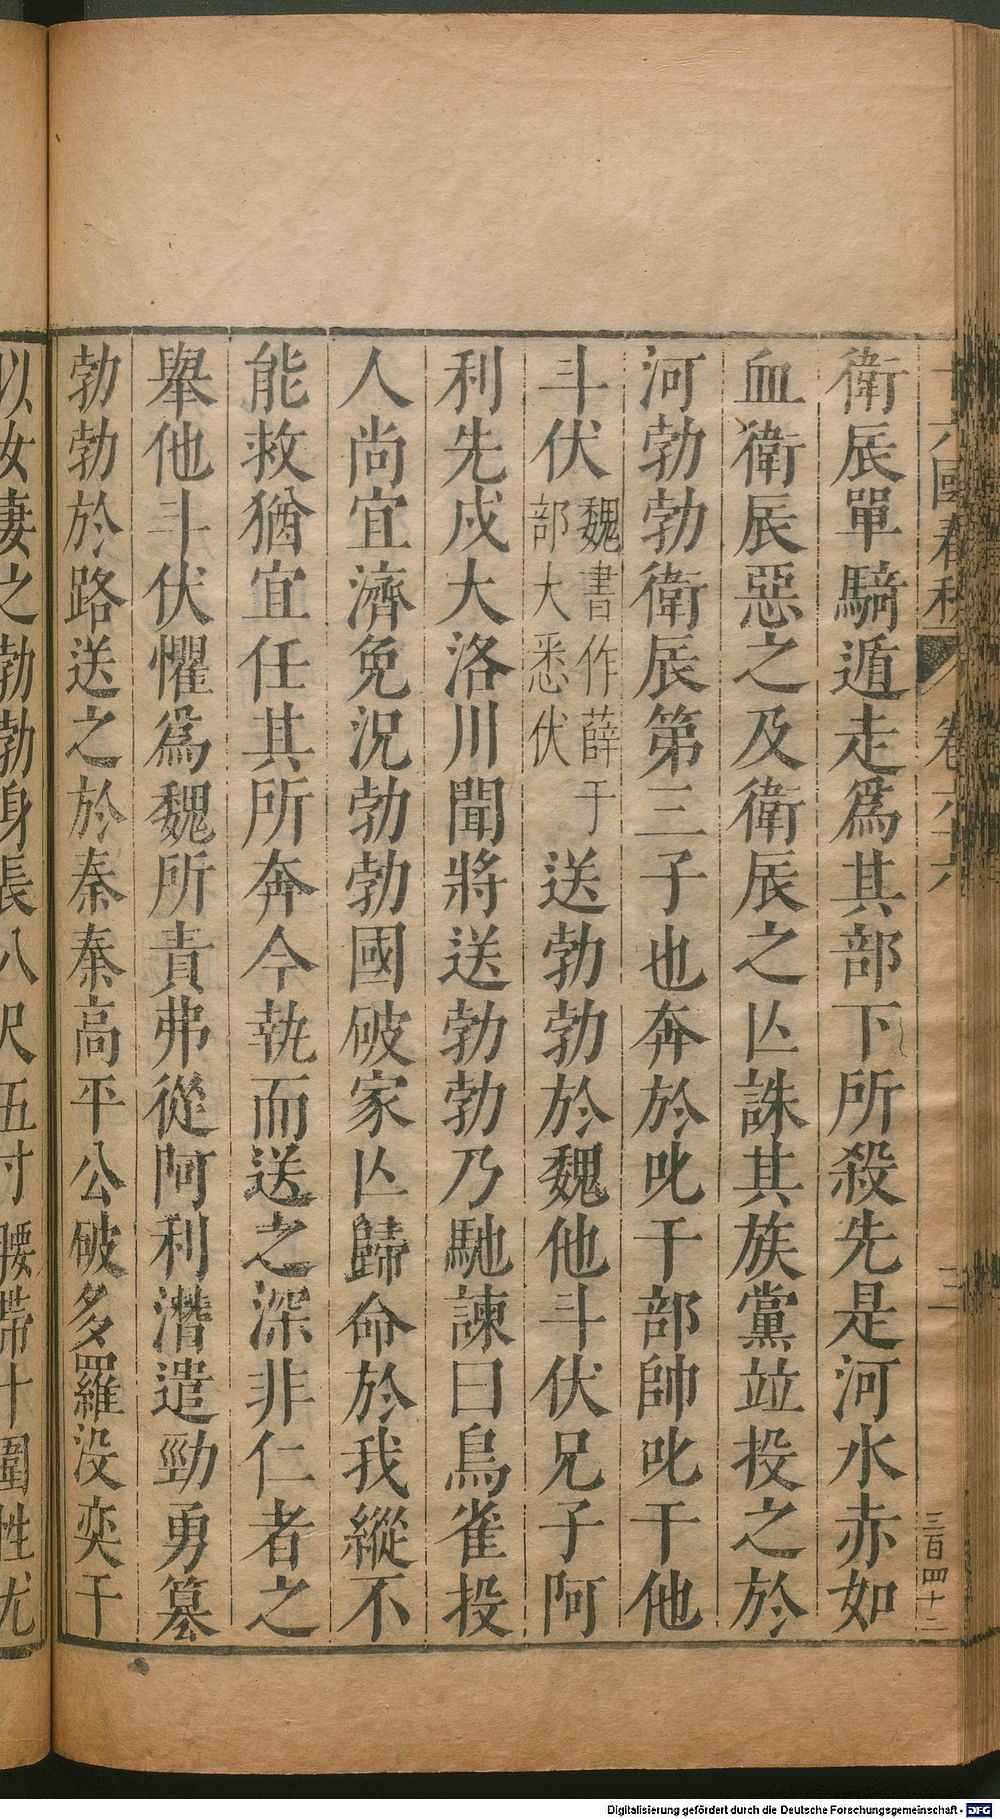 十六國春秋 卷六十六 二 三百四十二
衛辰單騎遁走爲其部下所殺先是河水赤如
血衛辰惡之及衛辰之亾誅其族黨竝投之於
河勃勃衛辰第三子也奔於叱干部帥叱干他
斗伏魏書作薛于部大悉伏送勃勃於魏他斗伏兄子阿
利先戍大洛川聞將送勃勃乃馳諫曰鳥雀投
人尚宜濟免況勃勃國破家亾歸命於我縱不
能救猶宜任其所奔今執而送之深非仁者之
舉他斗伏懼爲魏所責弗從阿利潛遣勁勇篡
勃勃於路送之於秦秦高平公破多羅没奕干
以女妻之勃勃身長八尺五寸腰帶十圍性尤
Digitalisierung gefördert durch die Deutsche Forschungsgemeinschaft - DFG